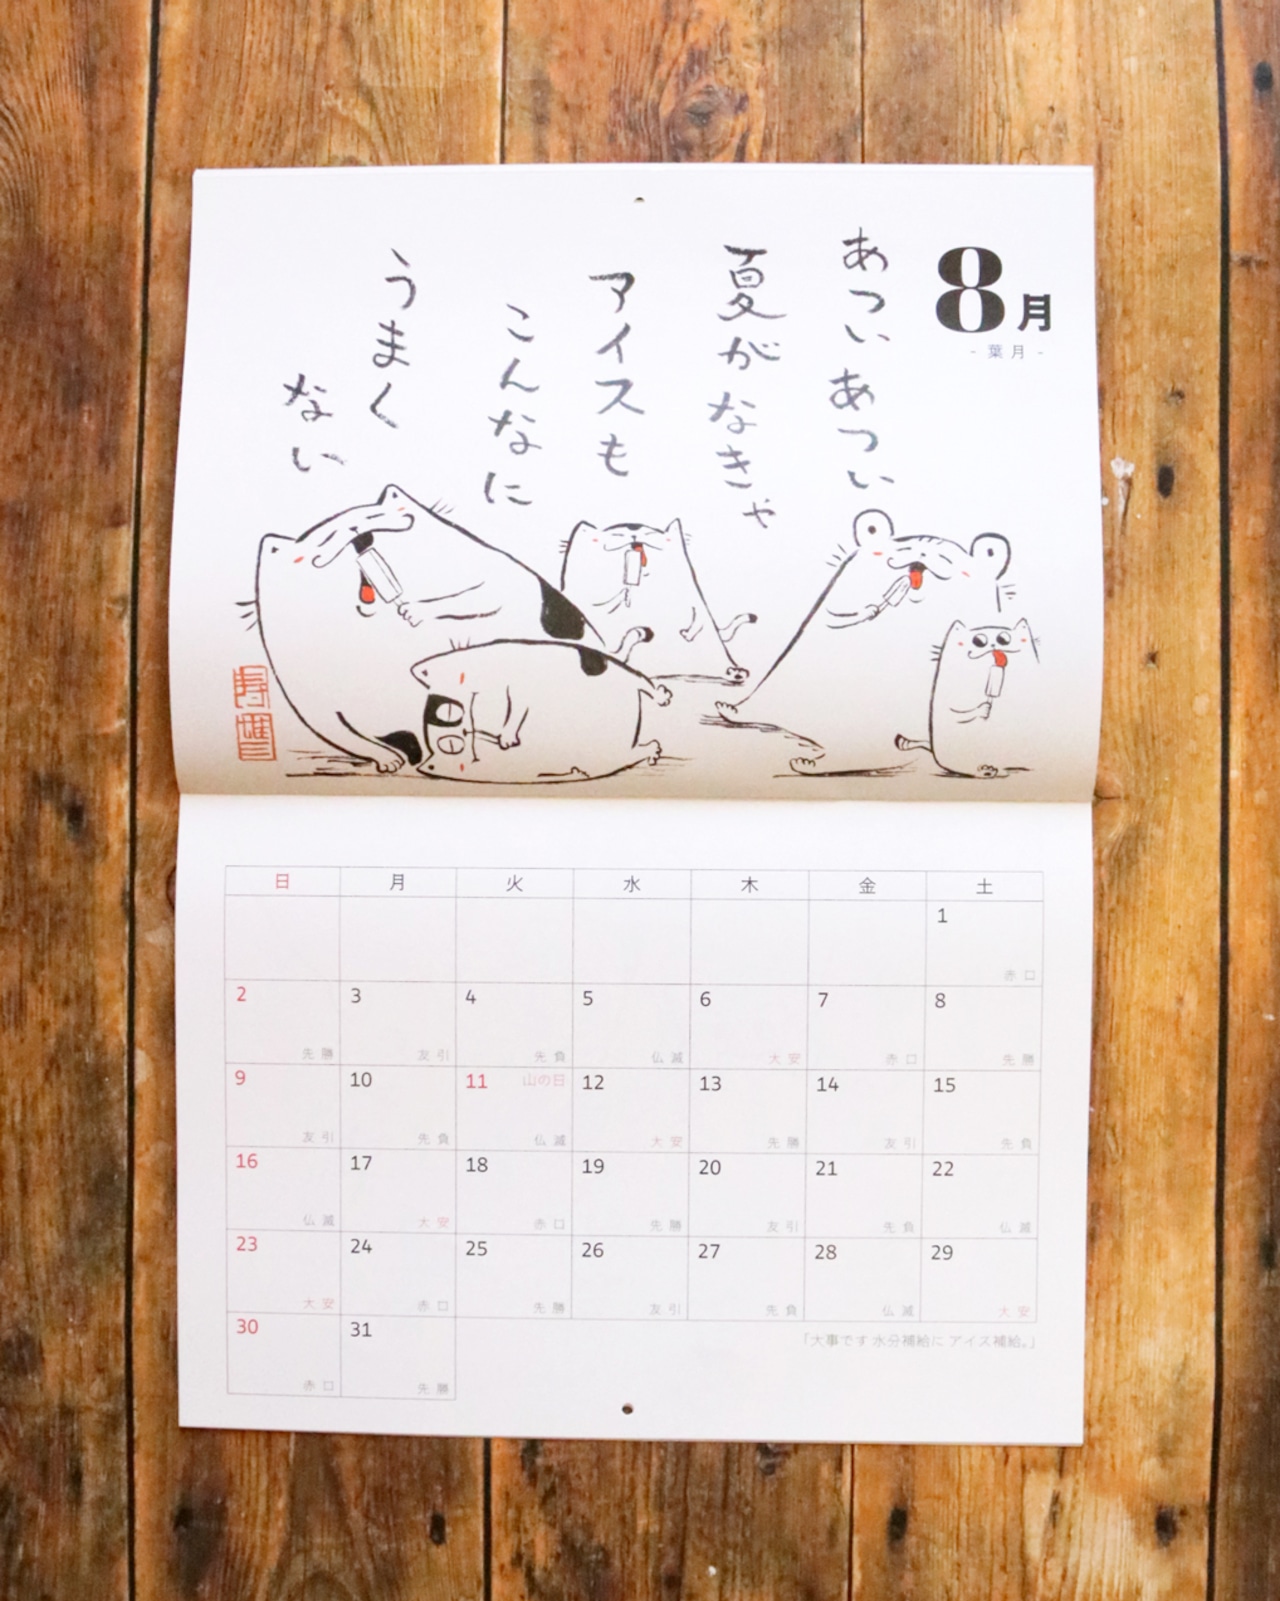 8月
- 葉月 -
あついあつい
夏がなきゃ
アイスも
こんなに
うまく
ない
日 月 火 水 木 金 土
1
赤口
2 3 4 5 6 7 8
先勝 友引 先負 仏滅 大安 赤口 先勝
9 10 11 山の日 12 13 14 15
友引 先負 仏滅 大安 先勝 友引 先負
16 17 18 19 20 21 22
仏滅 大安 赤口 先勝 友引 先負 仏滅
23 24 25 26 27 28 29
大安 赤口 先勝 友引 先負 仏滅 大安
30 31
赤口 先勝
「大事です 水分補給に アイス補給。」